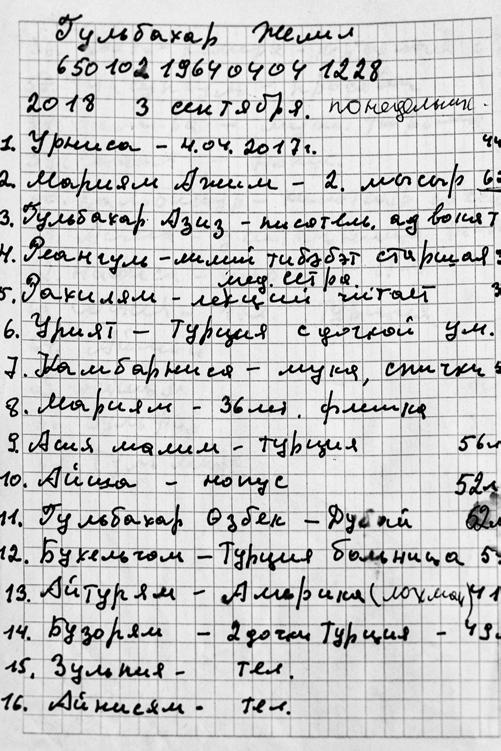 Гульбахар Желил
650102 19640404 1228
2018 3 сентября. понедельник.
1. Урниса - 4.04.2017г. 44
2. Мариям Ажим - 2. мысыр
3. Гульбахар Азиз - писатель. адвокат
4. Реангуль - старшая
мед. сетра
5. Рахилям - лекций читает
6. Урият - турция с дочкой ум.
7. Камбарниса - мука, спички
8. Мариям - 36лет. флешка
9. Асия малим - турция 56л
10. Айша - нопус 52л
11. Гульбахар Өзбек - Дубай 62л
12. Бухельчам - Турция больница 5
13. Айтурям - Америка (лохман) 41
14. Бузорям - 2 дочки Турция - 49л
15. Зульпия - тел.
16. Айнисям - тел.